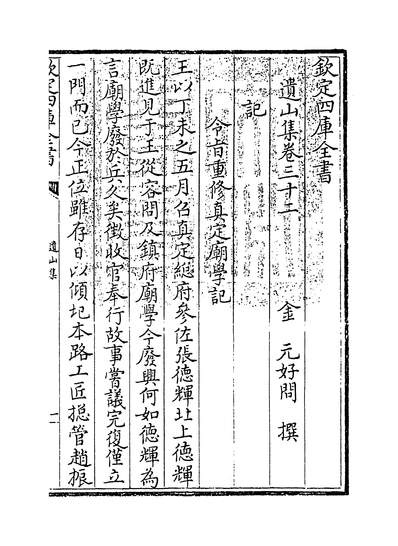 欽定四庫全書
遺山集卷三十二
金　元好問　撰
記
令旨重修真定廟學記
王以丁未之五月召真定總府參佐張德輝北上德輝
既進見于王從容問及鎮府廟學今廢興何如德輝為
言廟學廢於兵久矣徵收官奉行故事嘗議完復僅立
一門而已今正位雖存日以傾圮本路工匠總管趙振
欽定四庫全書
遺山集